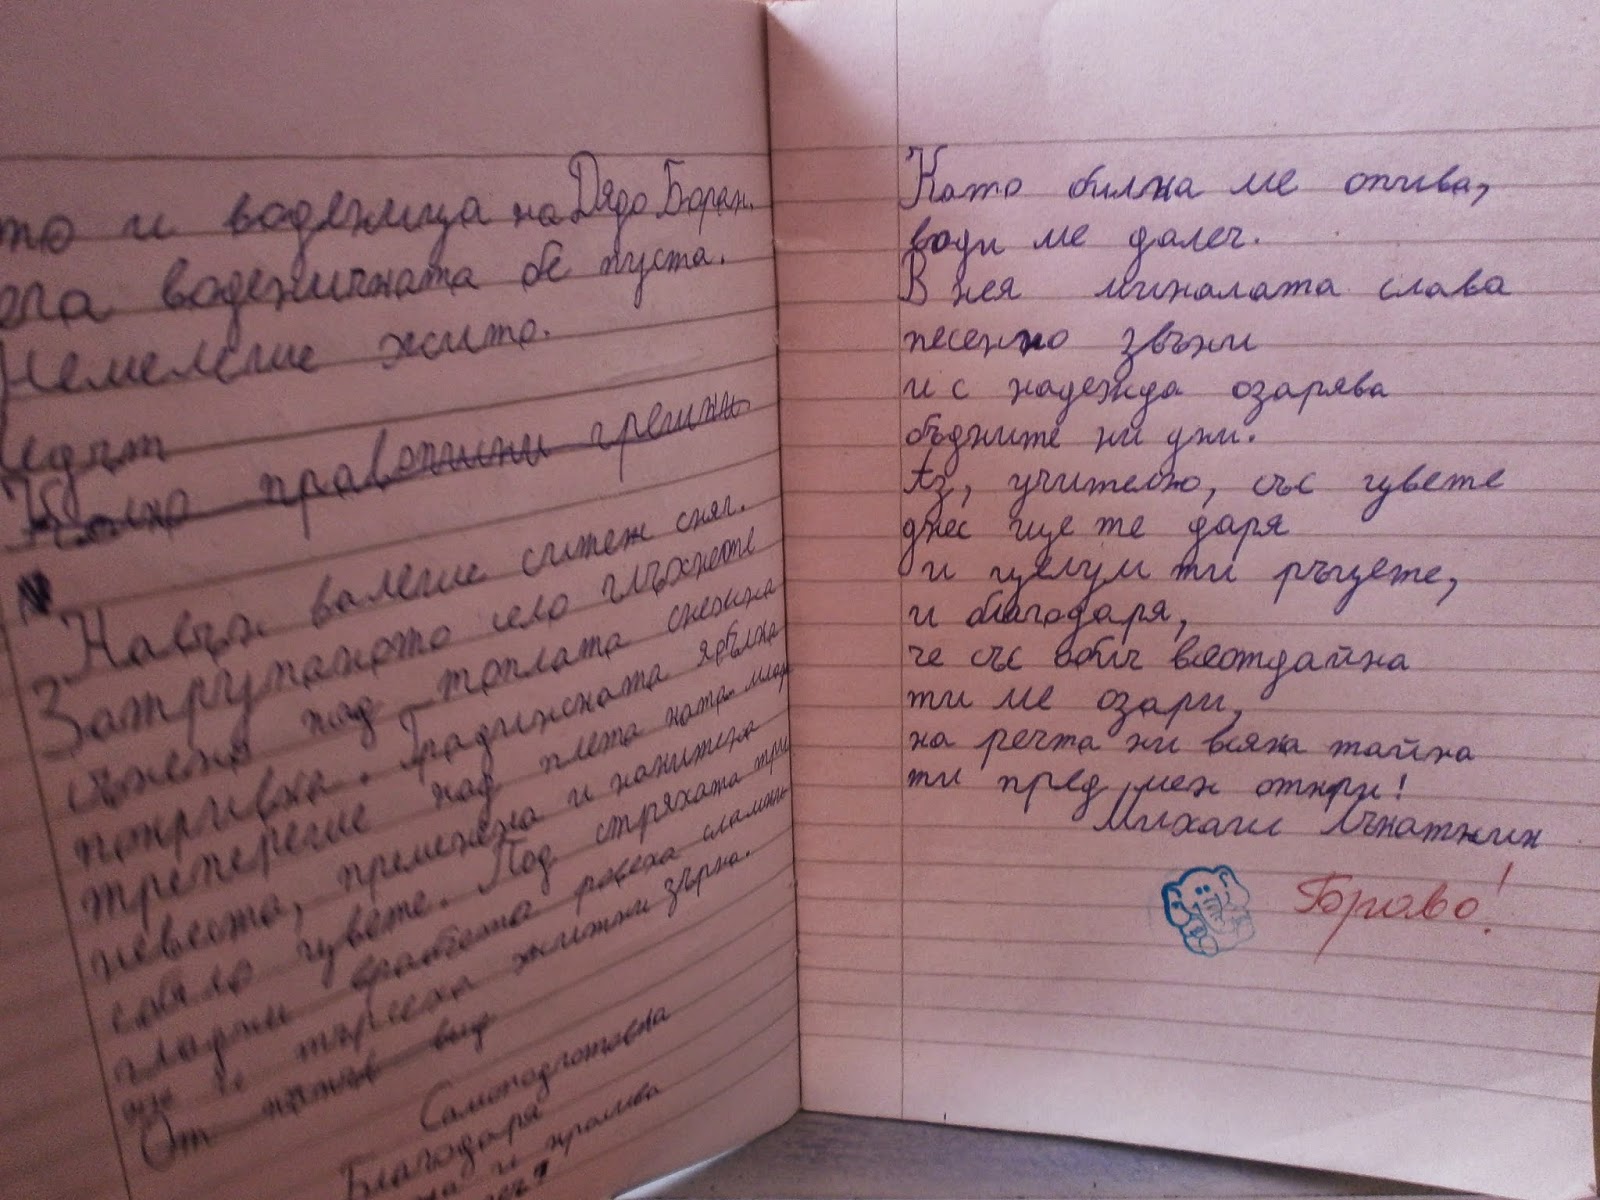 то и воденица на Дядо Боран.
ога воденичката бе пуста.
Немелеше жито.
Колко правописни грешки
Навън валеше ситен сняг.
Затрупаното село глъхнеше
сгушено под топлата снежна
покривка. Градинската ябълка
трепереше над плета като млада
невеста, пременена и накитена
с бяло цвете. Под стряхата три
гладни врабчета ровеха сламки
те и търсеха житни зърна.
От кътнов вид
Самоподготовка
Благодаря
Като билка ме опива,
води ме далеч.
В нея миналата слава
песенно звъни
и с надежда озарява
бъдните ни дни.
Аз, учителю, със цвете
днес ще те даря
и целун ти ръцете,
и благодаря,
че със обич всеотдайна
ти ме озари,
на речта ни всяка тайна
ти пред мен откри!
Михаил Лъкатник
Браво!